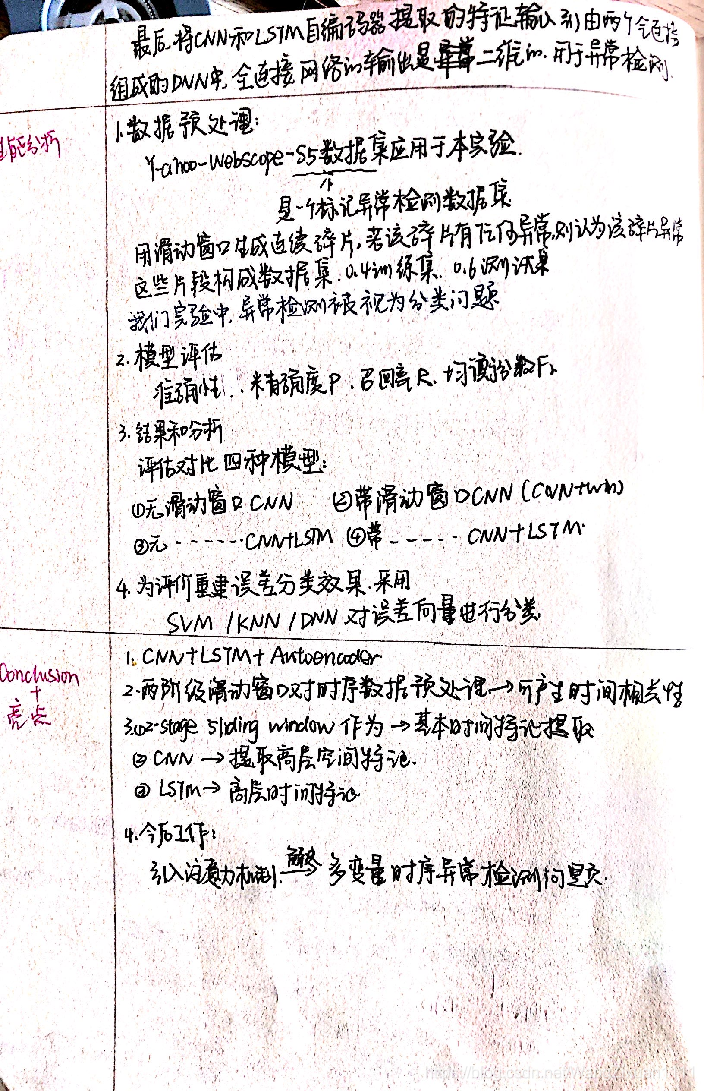 最后将CNN和LSTM自编码器提取的特征输入到由两个全连接
组成的DNN中,全连接网络的输出是二维的.用于异常检测.
性能分析
1.数据预处理:
Yahoo-Webscope-S5数据集应用于本实验.
是一个标记异常检测数据集
用滑动窗口生成连续碎片,若该碎片有任何异常,则认为该碎片异常
这些片段构成数据集.0.4训练集.0.6测试集
我们实验中,异常检测被视为分类问题
2.模型评估
准确性..精确度P.召回率R.均误分数F1
3.结果和分析
评估对比四种模型:
①无滑动窗口CNN ②带滑动窗口CNN(CNN+Win)
③无······CNN+LSTM ④带------CNN+LSTM.
4.为评价重建误差分类效果.采用
SVM/KNN/DNN对误差向量进行分类.
Conclusion
+
亮点
1.CNN+LSTM+Autoencoder
2.两阶级滑动窗口对时序数据预处理→可产生时间相关性
3.①2-stage sliding window作为→基本时间特征提取
②CNN→提取高层空间特征.
③LSTM→高层时间特征
4.今后工作:
引入注意力机制.解决→多变量时序异常检测问题.